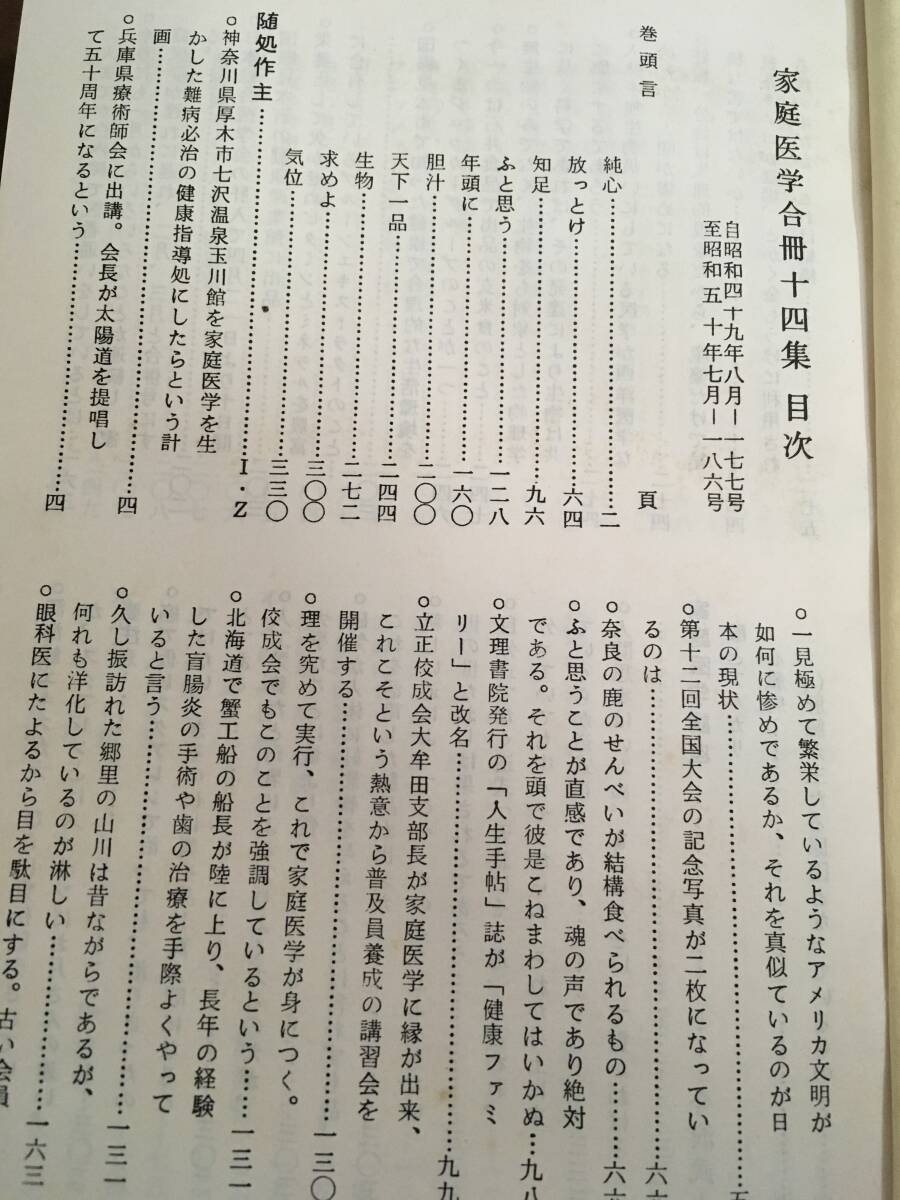 家庭医学合冊十四集 目次
自昭和四十九年八月―一七七号
至昭和五十年七月―一八六号
巻頭言
頁
純心……二
放っとけ……六四
知足……九六
ふと思う……一二八
年頭に……一六〇
胆汁……二〇〇
天下一品……二四四
生物……二七二
求めよ……三〇〇
気位……三三〇
随処作主……I・Z
○神奈川県厚木市七沢温泉玉川館を家庭医学を生
かした難病必治の健康指導処にしたらという計
画……四
○兵庫県療術師会に出講。会長が太陽道を提唱し
て五十周年になるという……四
○一見極めて繁栄しているようなアメリカ文明が
如何に惨めであるか、それを真似ているのが日
本の現状……
○第十二回全国大会の記念写真が二枚になってい
るのは……
○奈良の鹿のせんべいが結構食べられるもの……
○ふと思うことが直感であり、魂の声であり絶対
である。それを頭で彼是こねまわしてはいかぬ…九八
○文理書院発行の「人生手帖」誌が「健康ファミ
リー」と改名……九九
○立正佼成会大牟田支部長が家庭医学に縁が出来、
これこそという熱意から普及員養成の講習会を
開催する……一三〇
○理を究めて実行、これで家庭医学が身につく。
佼成会でもこのことを強調しているという……一三一
○北海道で蟹工船の船長が陸に上り、長年の経験
した盲腸炎の手術や歯の治療を手際よくやって
いると言う……一三一
○久し振訪れた郷里の山川は昔ながらであるが、
何れも洋化しているのが淋しい……一六三
○眼科医にたよるから目を駄目にする。古い会員